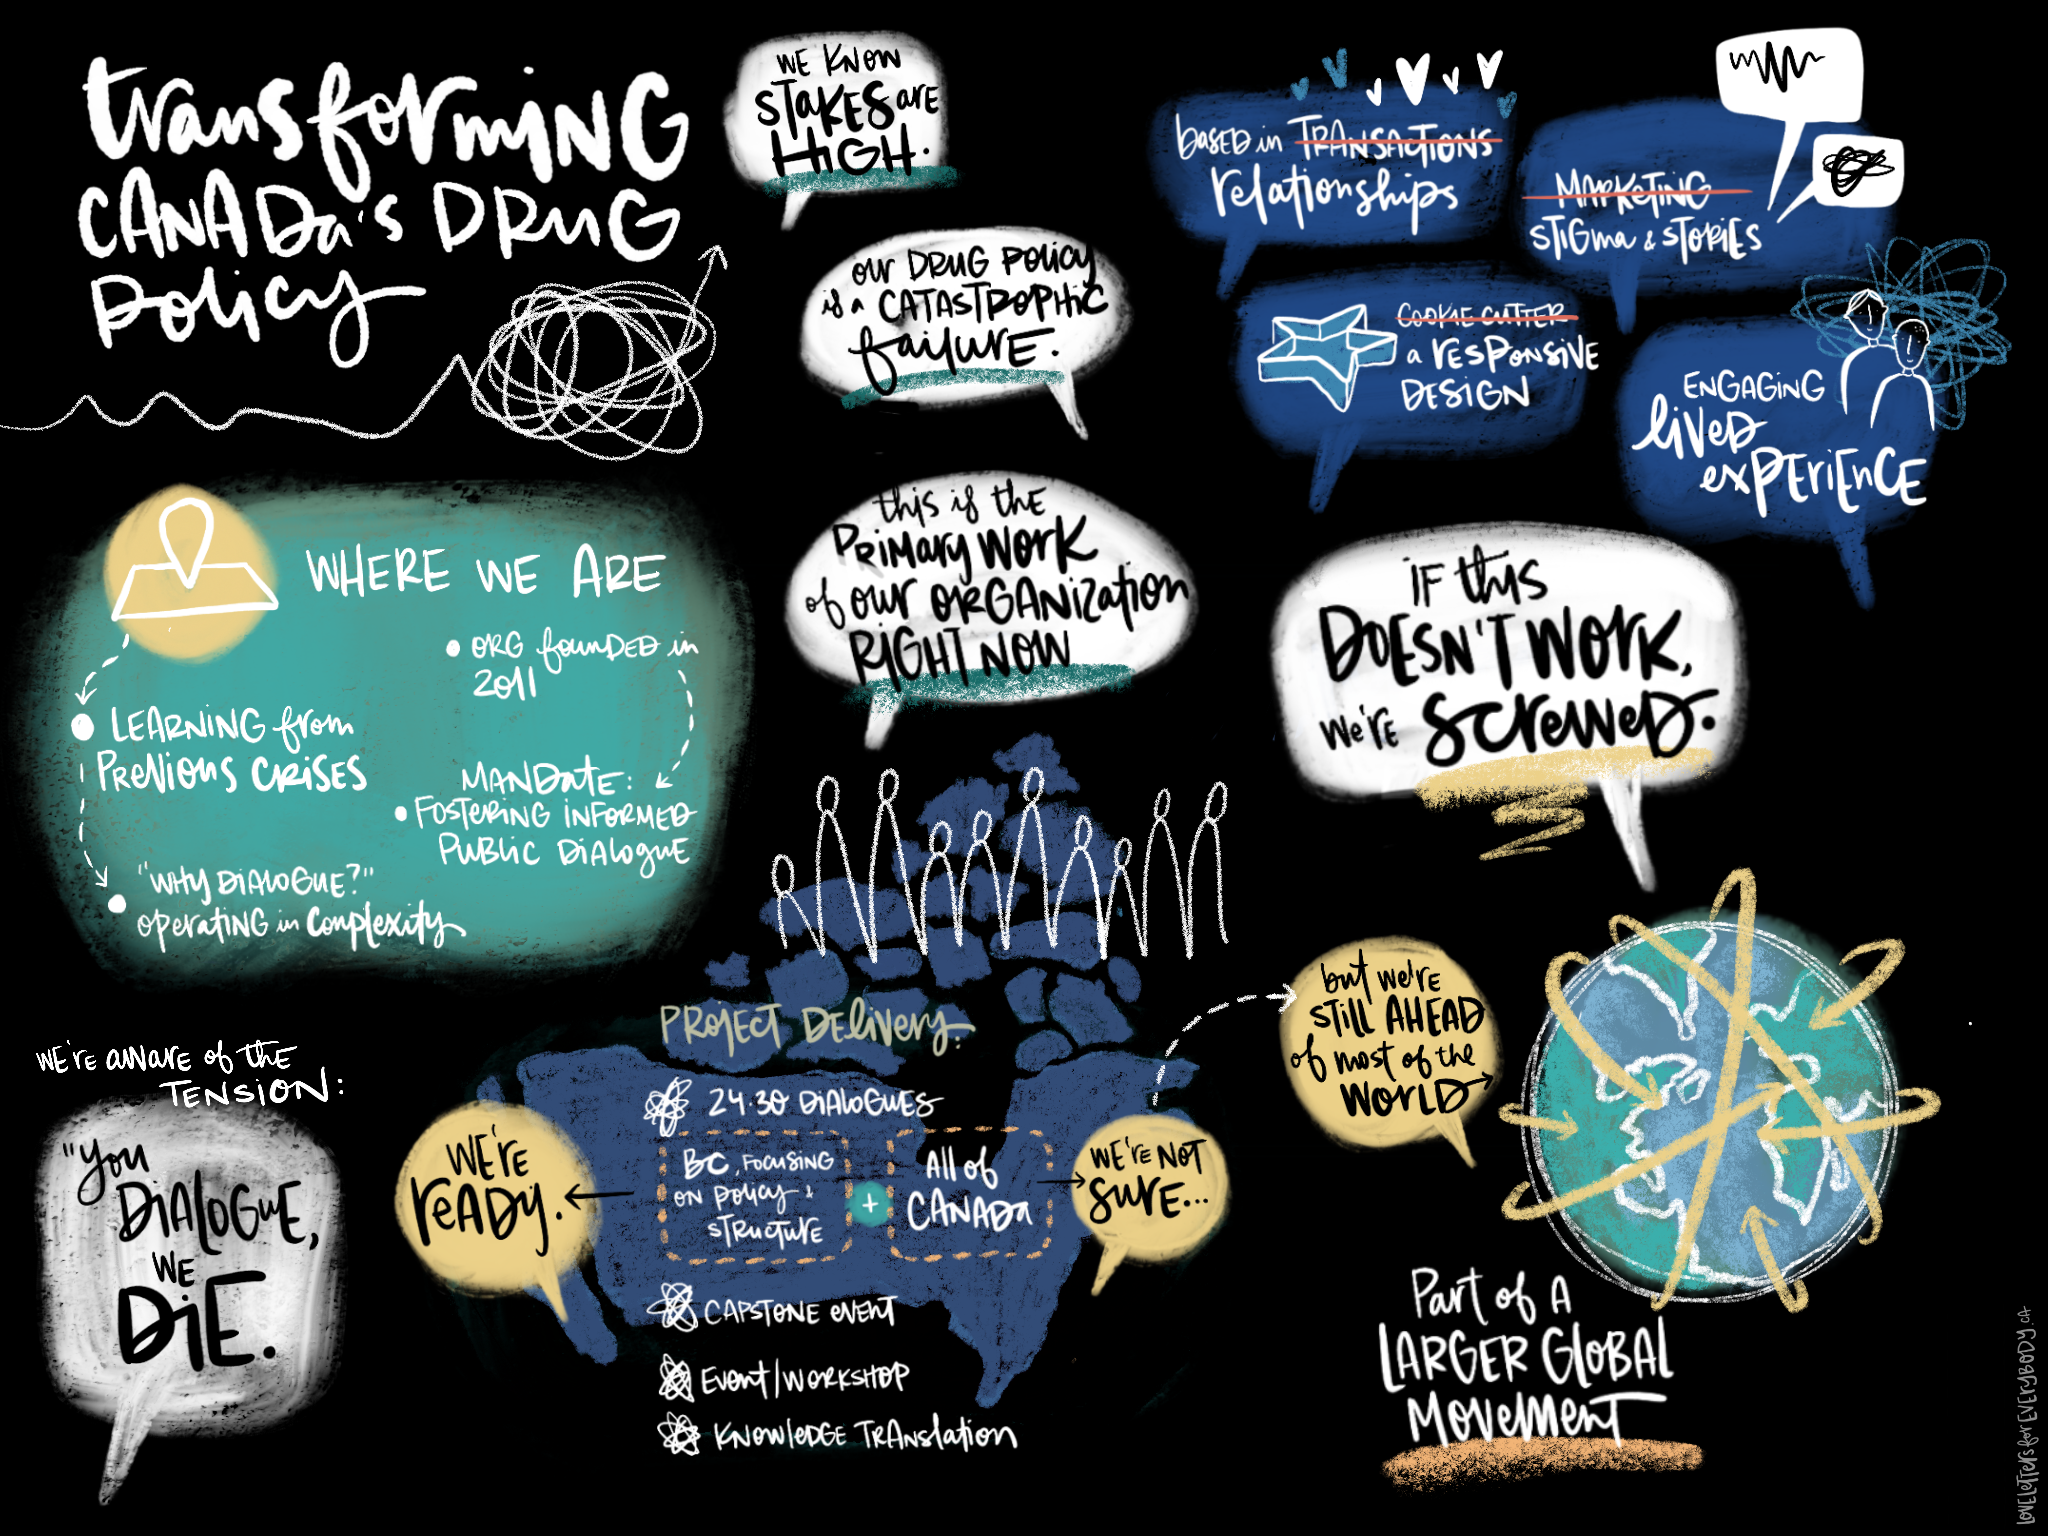 transforming
CANADa's DRUG
policy
WE KNOW
STAKES are
HIGH.
our DRUG POLICY
is a CATASTROPHIC
failure.
this is the
PRIMARY WORK
of our ORGANIZATION
RIGHT NOW
based in TRANSACTIONS
relationships
MARKETING
STIGMA & STORIES
COOKIE CUTTER
a RESPONSIVE
DESIGN
ENGAGING
LIVED
EXPERIENCE
IF this
DOESN'T WORK,
we're SCREWED.
WHERE WE ARE
LEARNING from
PREVIOUS CRISES
"WHY DIALOGUE?"
OPERATING in COMPLEXITY
• ORG founded in
2011
MANDATE:
• FOSTERING INFORMED
PUBLIC DIALOGUE
WE'RE AWARE of the
TENSION:
"you
DIALOGUE,
WE
DIE.
PROJECT DELIVERY:
24-30 DIALOGUES
BC, FOCUSING
ON POLICY &
STRUCTURE
+
All of
CANADA
WE'RE
READY.
WE'RE NOT
SURE...
CAPSTONE EVENT
EVENT/WORKSHOP
KNOWLEDGE TRANSLATION
but we're
STILL AHEAD
of most of the
WORLD
Part of A
LARGER GLOBAL
MOVEMENT
LOVELETTERSforEVERYBODY.CA